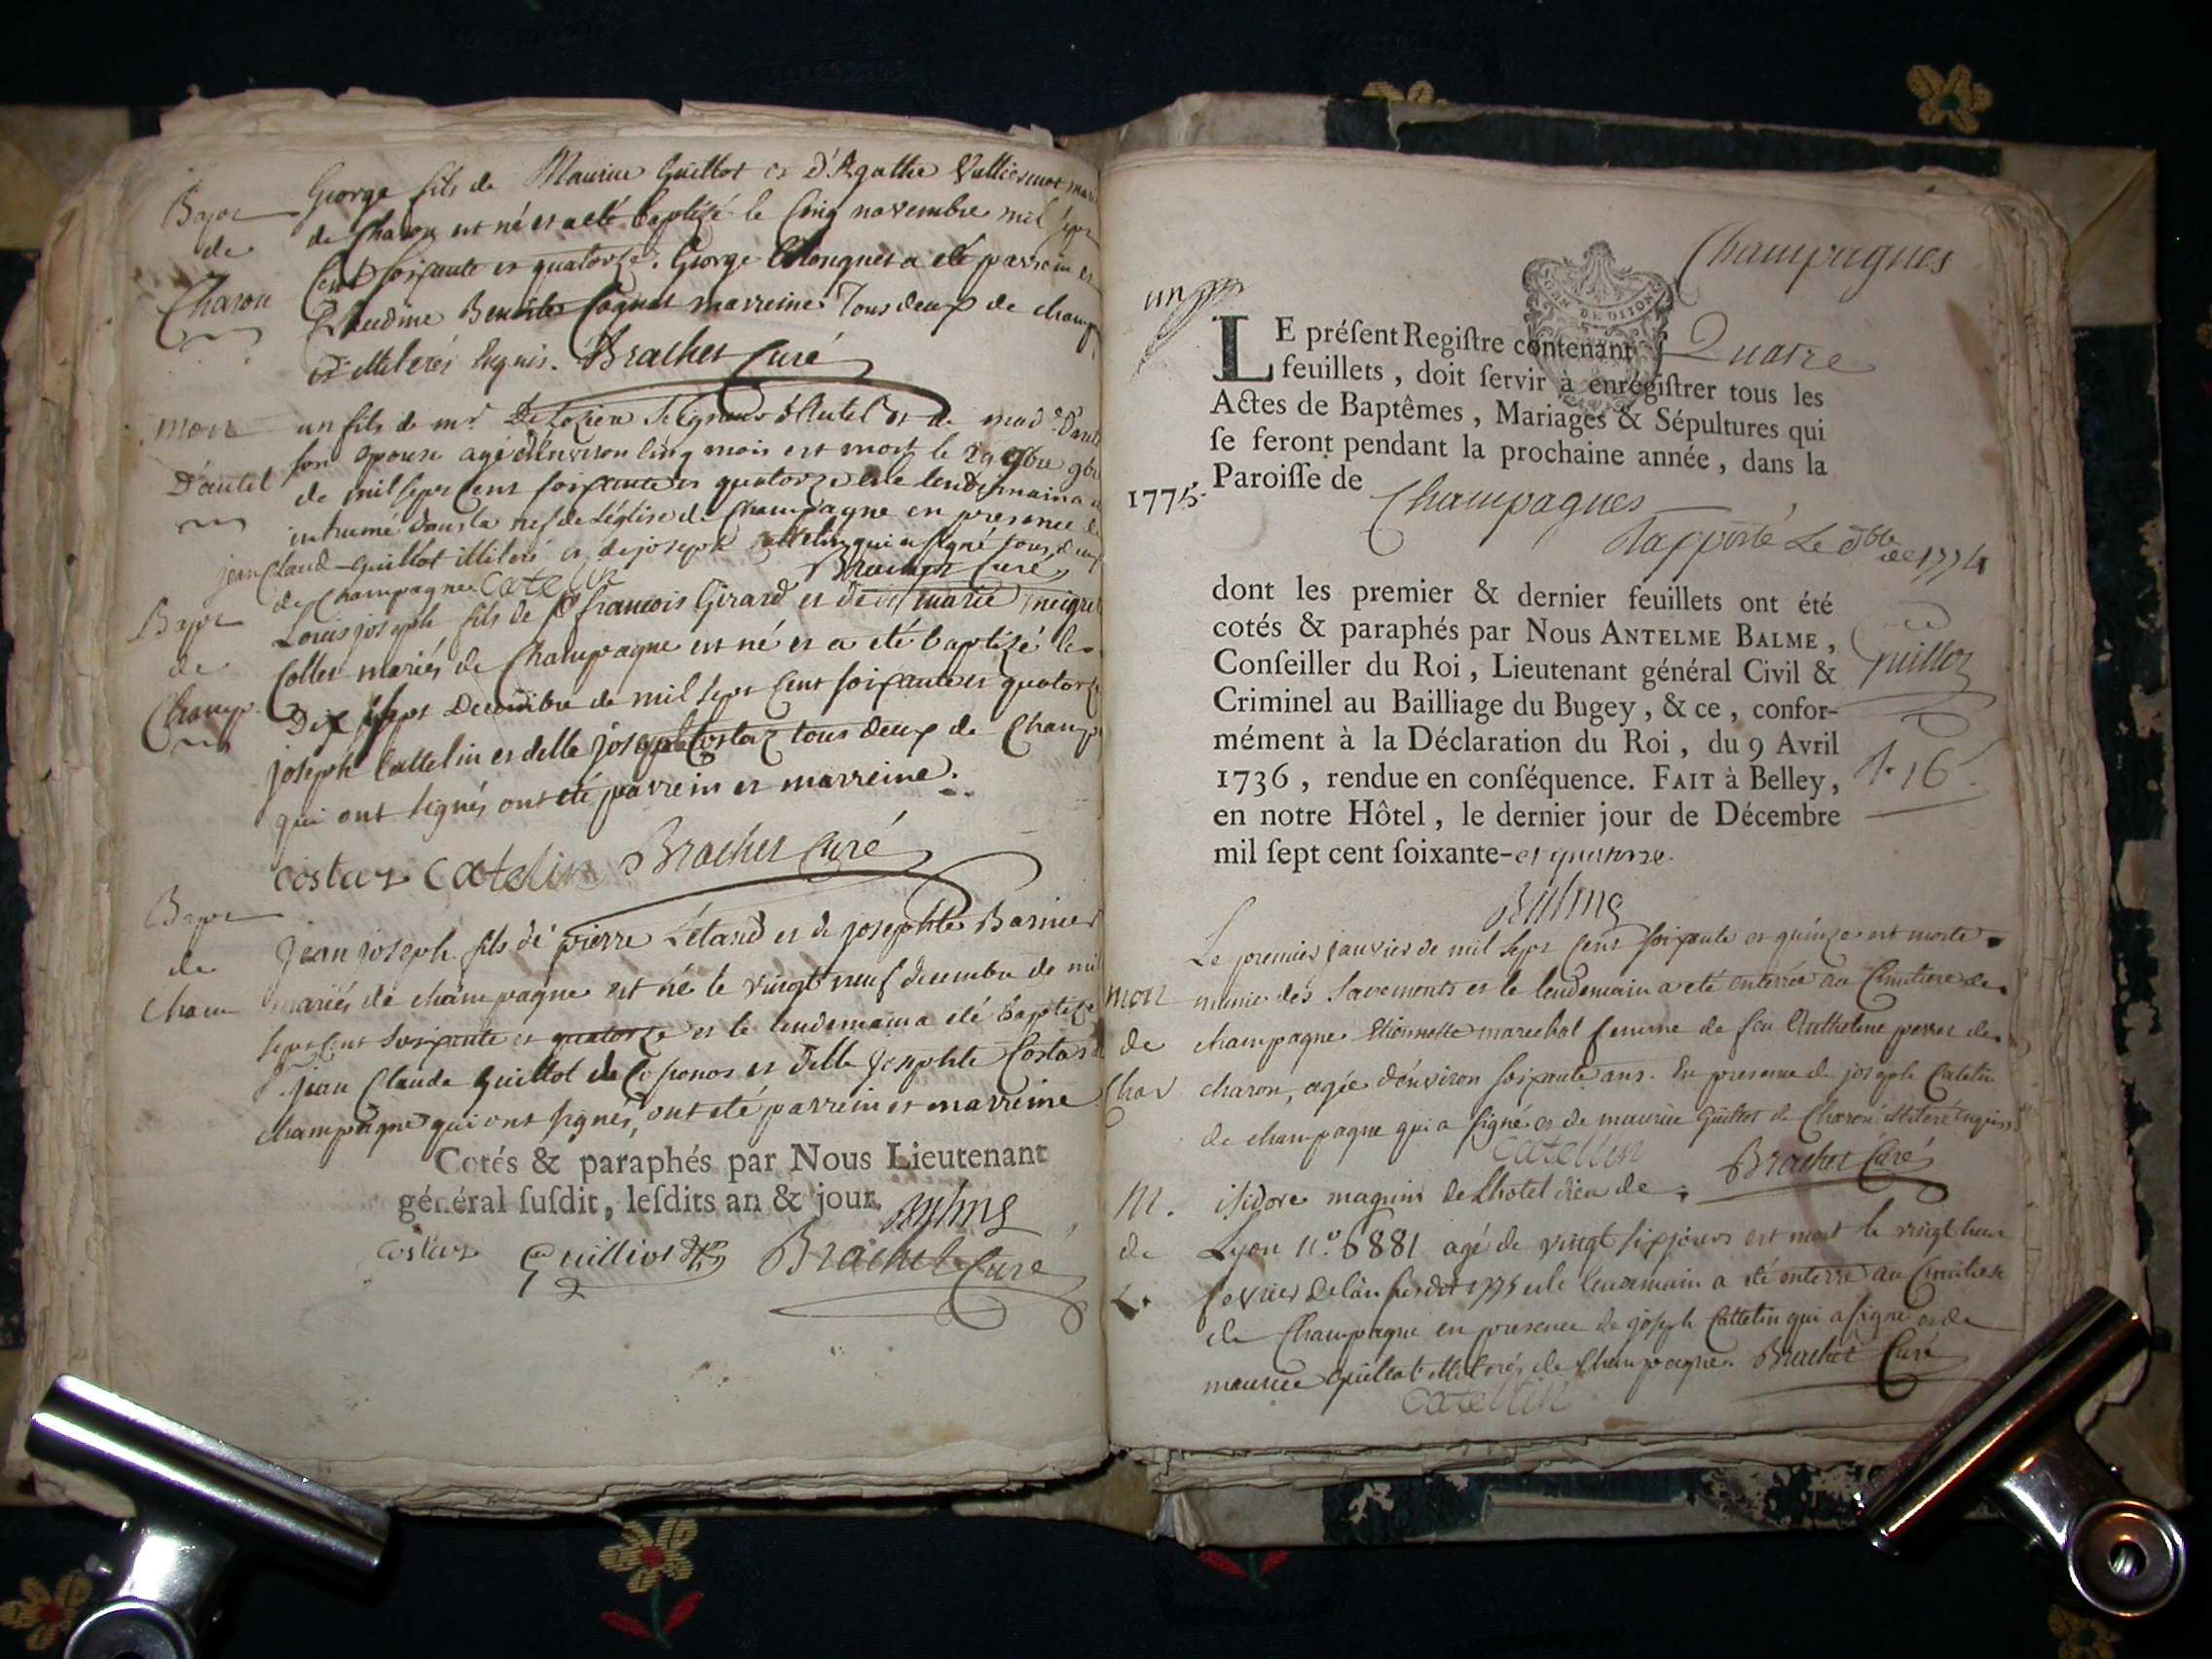 Bapt
de
Charon
George fils de Maurice Guillot et D'Agathe
de Charon est né et a eté baptizé le Cinq novembre mil sept
Cent soixante et quatorze. George a eté parrein et
Claudine marreine Tous deux de champ
et illiterés Enquis. Brachet Curé
mort
D'autel
un fils de mr. D'autel et de mad.e
son Epouse agé d'environ cinq mois est mort le 29 9bre
de mil sept Cent soixante et quatorze et le lendemain a
inhumé dans la nef de L'église de Champagne en presence de
jean Claude Guillot illiteré et de joseph Cattelin qui a signé tous deux
de Champagne. Catelin Brachet Curé
Bapt
de
Champ.
Louis joseph fils de françois Girard et de marie
Collet mariés de Champagne est né et a eté baptizé le
Dix sept Decembre de mil sept Cent soixante et quatorze
joseph Cattelin et delle josephte Costaz tous deux de Champ
qui ont signés ont eté parrein et marreine.
costaz Catelin Brachet Curé
Bapt
de
Cham
Jean joseph fils de pierre Létand et de josephte Barnier
mariés de champagne est né le vingt neuf decembre de mil
sept Cent soixante et quatorze et le lendemain a été baptizé
jean Claude Guillot de et delle josephte Costaz de
champagne qui ont signés, ont eté parrein et marreine
Cotés & paraphés par Nous Lieutenant
général ſuſdit, leſdits an & jour. Balme
Costaz Guilliot Brachet Curé
Champagnes
un
DE DIJON
LE préſent Regiſtre contenant Quatre
feuillets, doit ſervir à enrégiſtrer tous les
Actes de Baptêmes, Mariages & Sépultures qui
ſe feront pendant la prochaine année, dans la
1775. Paroiſſe de Champagnes
Rapporté Le xbre
de 1774
dont les premier & dernier feuillets ont été
cotés & paraphés par Nous ANTELME BALME,
Conſeiller du Roi, Lieutenant général Civil &
Guillot
Criminel au Bailliage du Bugey, & ce, confor-
mément à la Déclaration du Roi, du 9 Avril
1736, rendue en conſéquence. FAIT à Belley,
1. 16
en notre Hôtel, le dernier jour de Décembre
mil ſept cent ſoixante-et quatorze.
Balme
mort
de
Char
Le premier janvier de mil sept Cent soixante et quinze est morte
munie des Sacrements et le lendemain a eté enterrée au Cimitiere de
champagne Etiennette marechal femme de feu Anthelme perret de
charon, agée d'environ soixante ans. En presence de joseph Catelin
de champagne qui a signé et de maurice Guillot de Charon illiteré enquis
Catellin Brachet Curé
M.
de
L.
isidore magnin de L'hotel dieu de
Lyon n.o 6881 agé de vingt six jours est mort le vingt huit
fevrier de l'an susdit 1775 et le lendemain a eté enterré au Cimitiere
de Champagne en presence de joseph Cattelin qui a signé et de
maurice Guillot illiterés de Champagne. Brachet Curé
Catellin